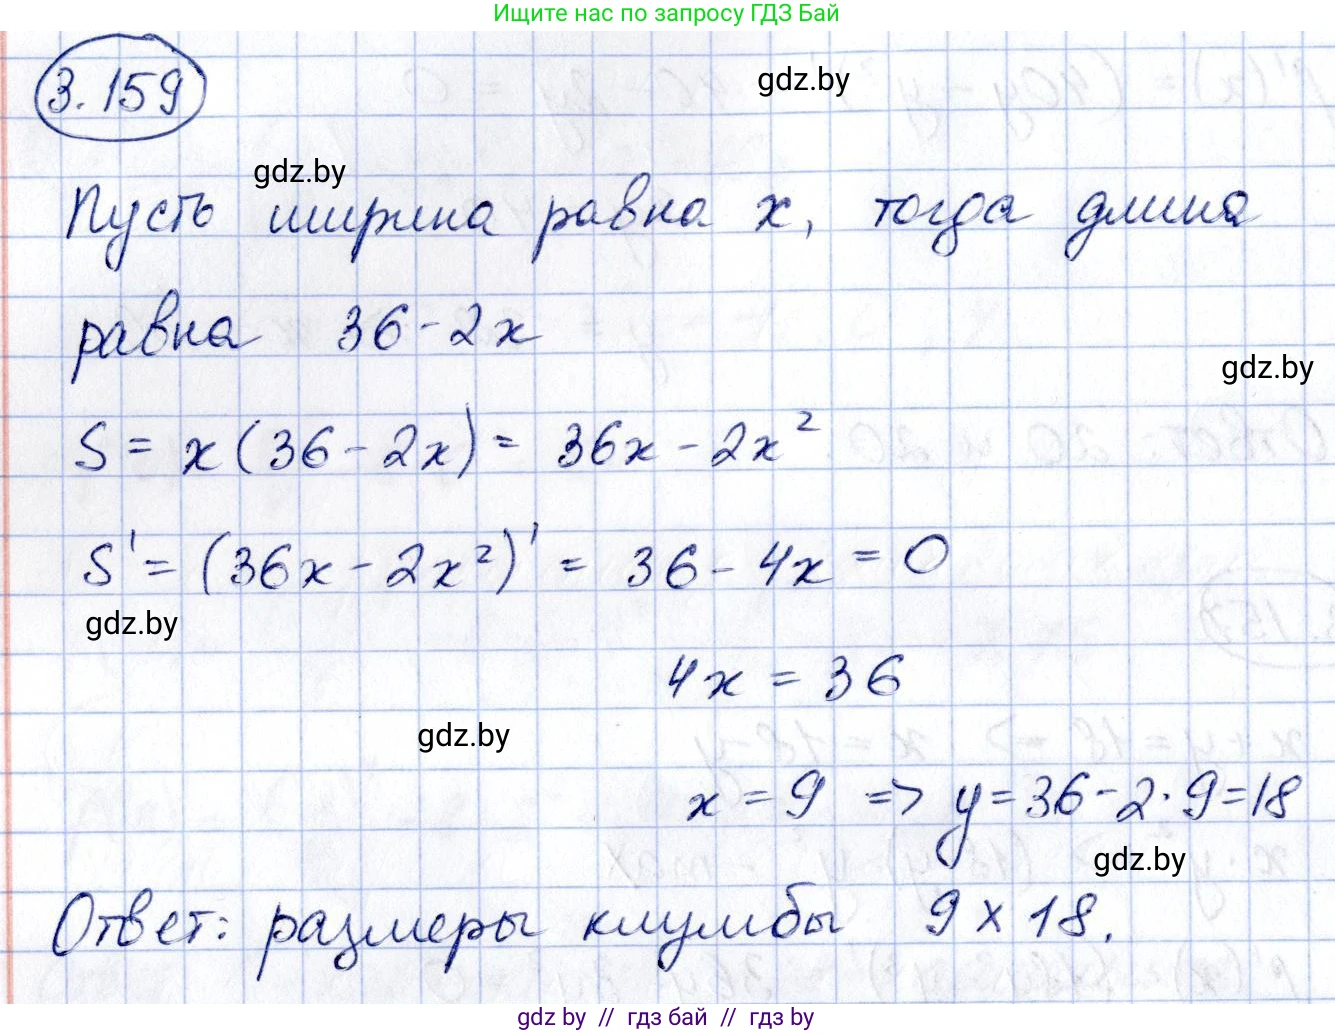 Ищите нас по запросу ГДЗ Бай
3.159
gdz.by
gdz.by
Пусть ширина равна x, тогда длина
равна 36-2x
gdz.by
S = x(36-2x) = 36x-2x²
S' = (36x-2x²)' = 36-4x = 0
gdz.by
4x = 36
gdz.by
x = 9 => y = 36-2·9=18
gdz.by
Ответ: размеры клумбы 9 x 18.
gdz.by // гдз бай // гдз by